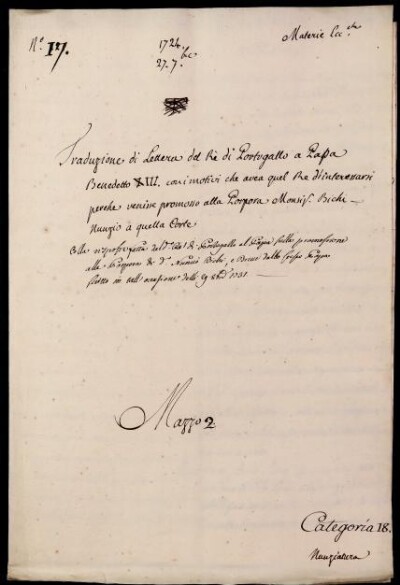 N.º 17.
1724.
27. 7.bre
Materie Ecc.che
Traduzione di Lettera del Rè di Portugallo a Papa
Benedetto XIII. coi motivi che avea quel Re d'interessarsi
perche venisse promosso alla Porpora Monsig.r Bichi
Nunzio a quella Corte
Colla risposta del Rè di Portogallo al Papa sulla promozione
alla Porpora di d.º Nunzio Bichi, e Breve dello stesso Papa
scritto in tal occasione delli 9 1731
Mazzo 2
Categoria 18.
Nunziatura